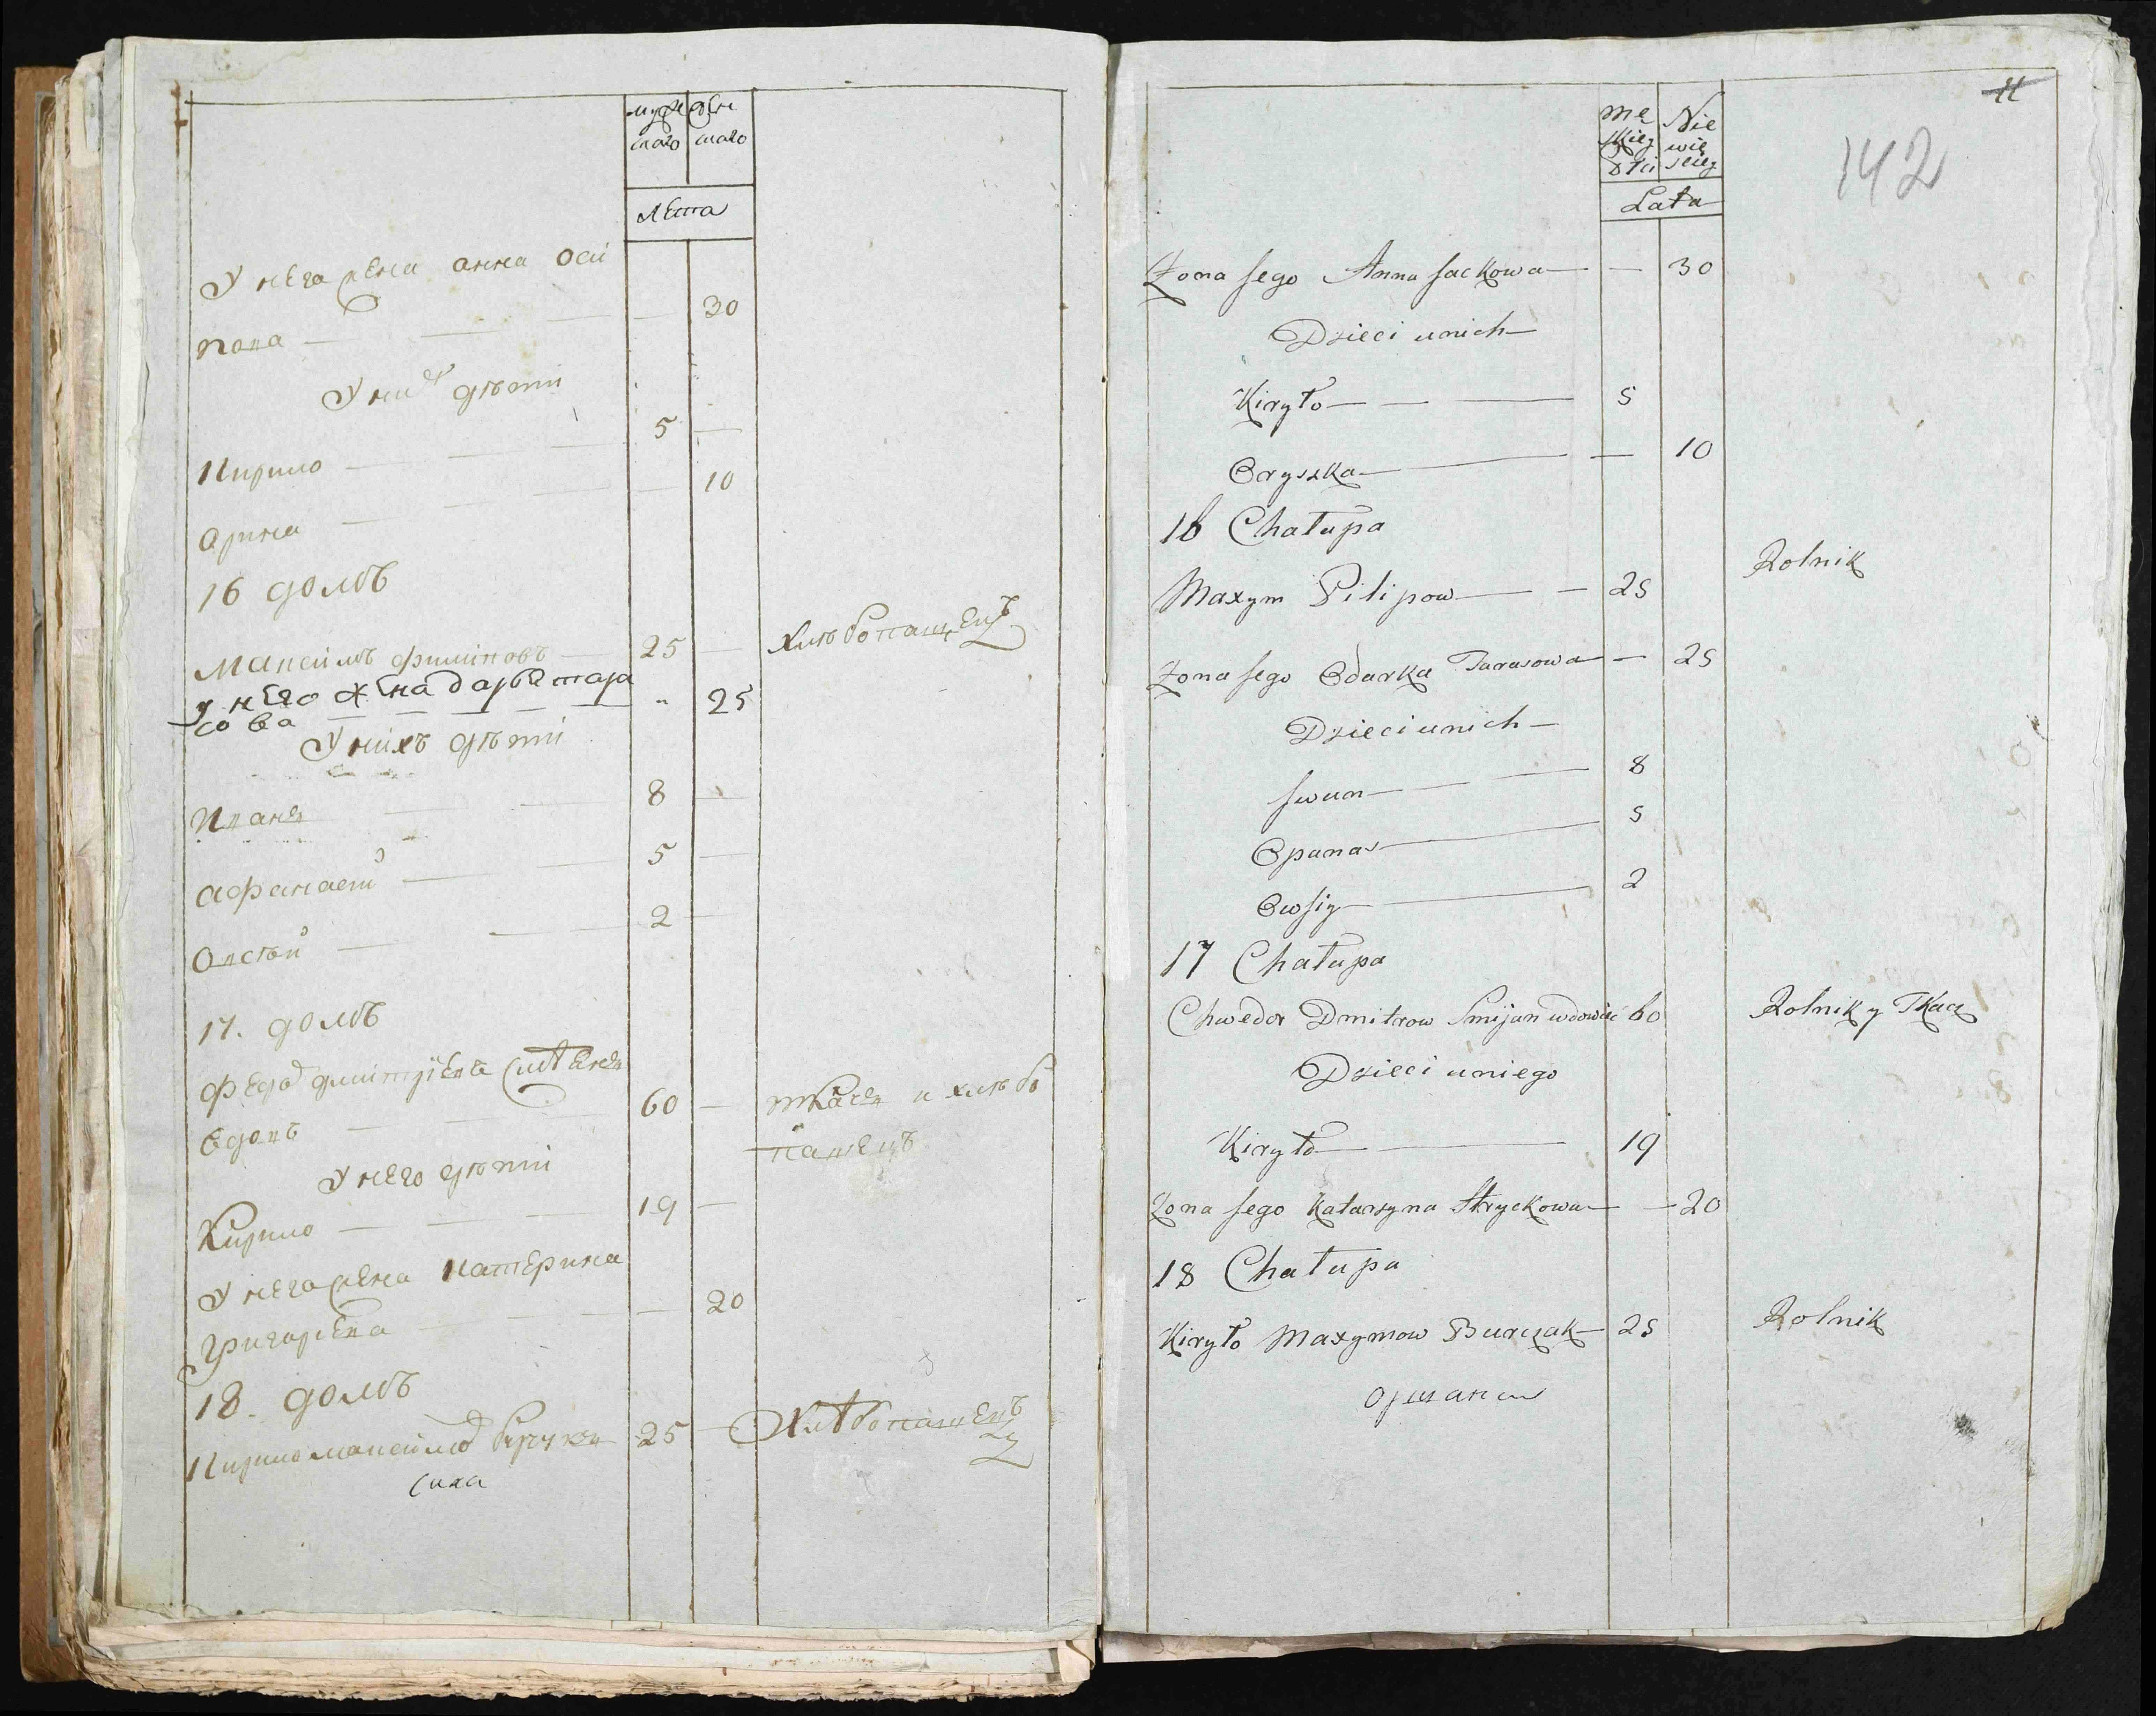 муже жен
ска́го скаго
лета
У него жена анна оси
пова — — — — 30
У них дѣти
Кирило — — — 5 —
арина — — — — 10
16 домъ
Максимъ филиповъ — 25 — хлѣбопашецъ
у него жена дарья тара
сова — — — — — " 25
У нихъ дѣти
Иванъ — — 8 —
афанасей — — 5 —
Овсѣй — — 2 —
17. домъ
Федор дмитріевъ
вдовъ — — 60 — ткачъ и хлѣбо
пашецъ
У него дѣти
Кирило — — — 19 —
У него жена Катерина
григорьева — — — — 20
18. домъ
Кирило максимов 25 — Хлѣбопашецъ
11
142
Mę Nie
skiey wie
Płci sciey
Lata
Żona Jego Anna Jackowa — — 30
Dzieci u nich —
Kiryło — — — 5
Oryszka — — 10
16 Chałupa
Maxym Pilipow — — 25 Rolnik
Żona Jego Odarka Tarasowa — — 25
Dzieci u nich —
Iwan — — — 8
Opanas — 5
Owsiy — — 2
17 Chałupa
Chwedor Dmitrow Smijan wdowiec 60 Rolnik y Tkacz
Dzieci u niego
Kiryło — — 19
Żona Jego Katarzyna Hryckowa — — 20
18 Chałupa
Kiryło Maxymow Burczak — 25 Rolnik